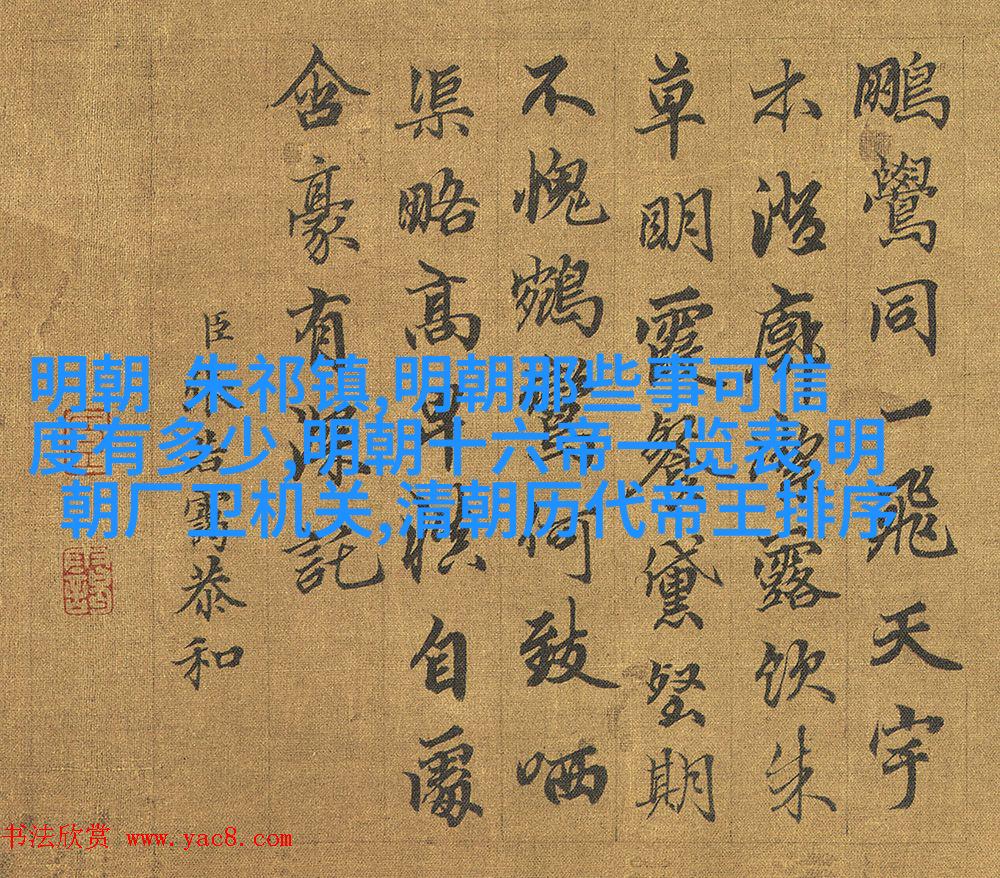 鵬鷽同一飛天宇
木澄廓露飲朱
草明霞餐黛壑期
不愧鶴驚何致哂
渠略高卑懶自
含豪有深託
臣若靄恭和
明朝 朱祁镇,明朝那些事可信
度有多少,明朝十六帝一览表,明
朝厂卫机关,清朝历代帝王排序
书法欣赏 www.yac8.com